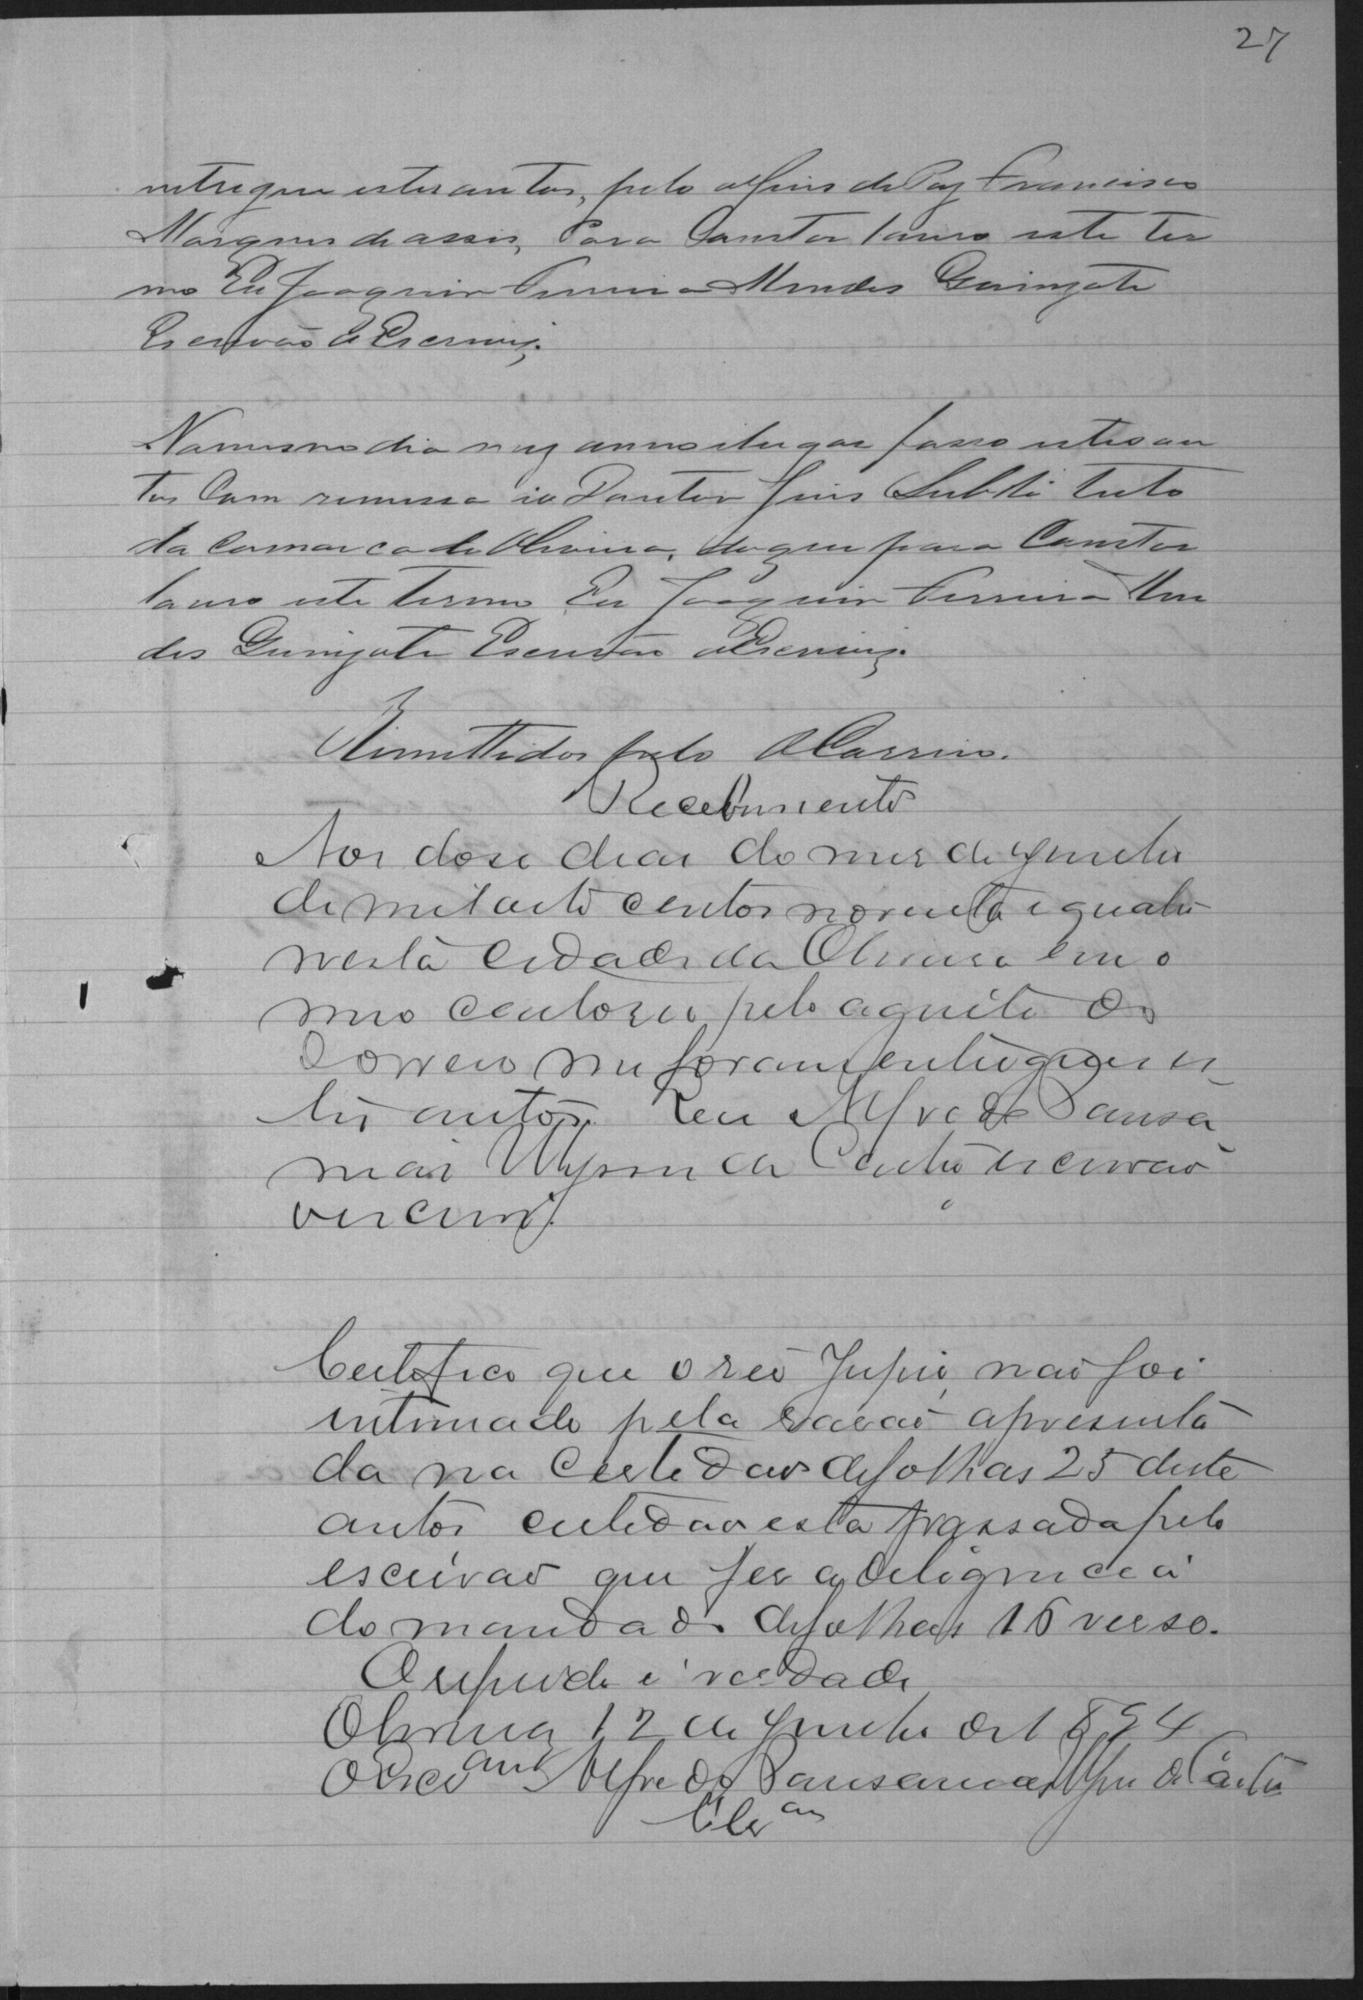 27
entregue estes autos, pelo o Juis de Paz Francisco
Marques de assis, Para Constar lavro este ter
mo Eu Joaquim Ferreira Mendes
Escrivão o Escrevy.
No mesmo dia mez anno e lugar fasso estes au
tos Com remessa ao Doutor Juis Substituto
da Comarca de Oliveira, do que para Constar
lavro este termo Eu Joaquim Ferreira Men
des Escrivão o Escrevy.
Remettidos pelo o Correio.
Recebimento
Aos dose dias do mes de Junho
de mil oito centos noventa e quatro
nesta cidade da Oliveira em o
meo cartorio pelo agente do
Correio me foram entregues es
tes autos. Eu Alfredo
de Castro escrivão
escrevi.
Certifico que o reo não foi
intimado pela rasão apresenta
da na Certidão de folhas 25 deste
autos certidão esta passada pelo
escrivão que fes a deligencia
do mandado de folhas 16 verso.
O referido é verdade
Oliveira 12 de Junho de 1894
O Escr.am Alfredo de Castro